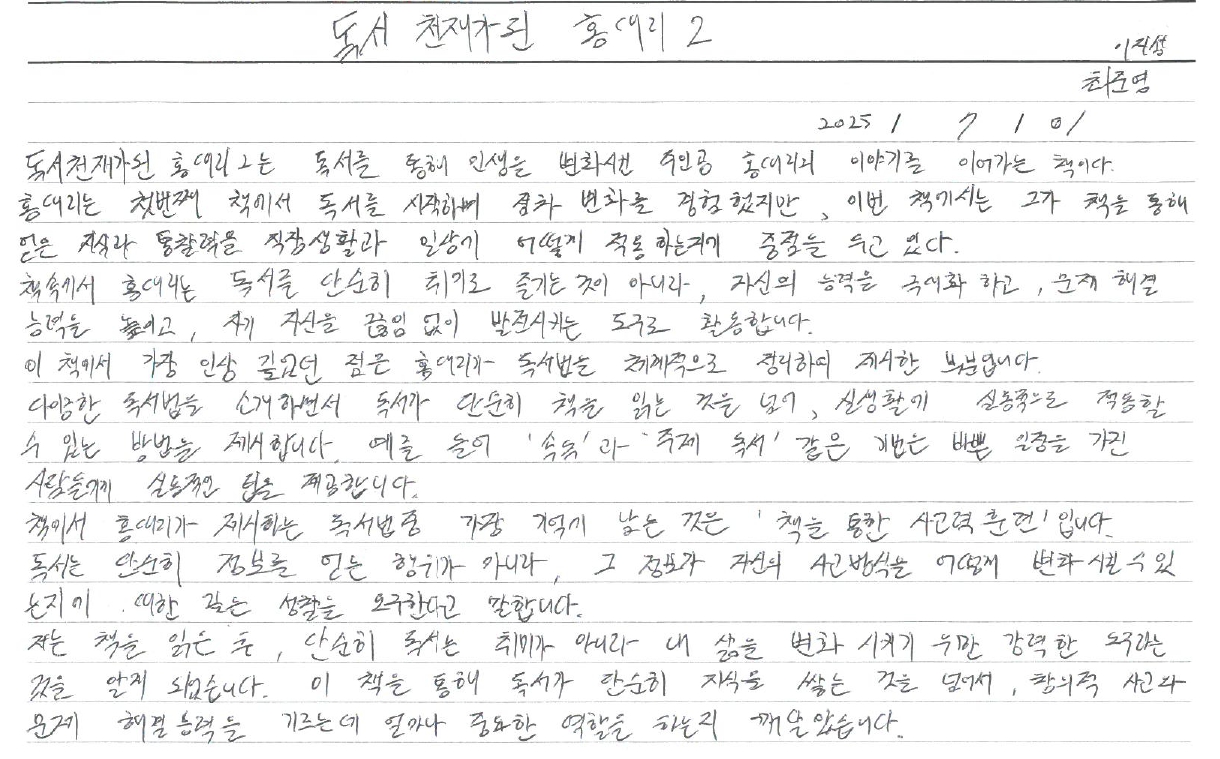 독서 천재가된 홍대리 2
이지성
최준영
2025 / 7 / 01
독서천재가된 홍대리 2는 독서를 통해 인생을 변화시킨 주인공 홍대리의 이야기를 이어가는 책이다.
홍대리는 첫번째 책에서 독서를 시작하며 중화 변화를 경험했지만, 이번 책에서는 그가 책을 통해
얻은 지식과 통찰력을 직장생활과 일상에 어떻게 적용하는지에 중점을 두고 있다.
책속에서 홍대리는 독서를 단순히 취미로 즐기는 것이 아니라, 자신의 능력을 극대화 하고, 문제 해결
능력을 높이고, 자기 자신을 끊임 없이 발전시키는 도구로 활용합니다.
이 책에서 가장 인상 깊었던 점은 홍대리가 독서법을 체계적으로 정리하여 제시한 부분입니다.
다양한 독서법을 소개하면서 독서가 단순히 책을 읽는 것을 넘어, 실생활에 실용적으로 적용할
수 있는 방법을 제시합니다. 예를 들어 '속독'과 '주제 독서' 같은 기법은 바쁜 일정을 가진
사람들에게 실용적인 팁을 제공합니다.
책에서 홍대리가 제시하는 독서법중 가장 기억에 남는 것은 '책을 통한 사고력 훈련'입니다.
독서는 단순히 정보를 얻는 행위가 아니라, 그 정보가 자신의 사고방식을 어떻게 변화 시킬 수 있
는지에 대한 깊은 성찰을 요구한다고 말합니다.
저는 책을 읽은 후, 단순히 독서는 취미가 아니라 내 삶을 변화 시키기 위한 강력한 도구라는
것을 알게 되었습니다. 이 책을 통해 독서가 단순히 지식을 쌓는 것을 넘어서, 창의적 사고과
문제 해결능력을 기르는데 얼마나 중요한 역할을 하는지 깨달았습니다.